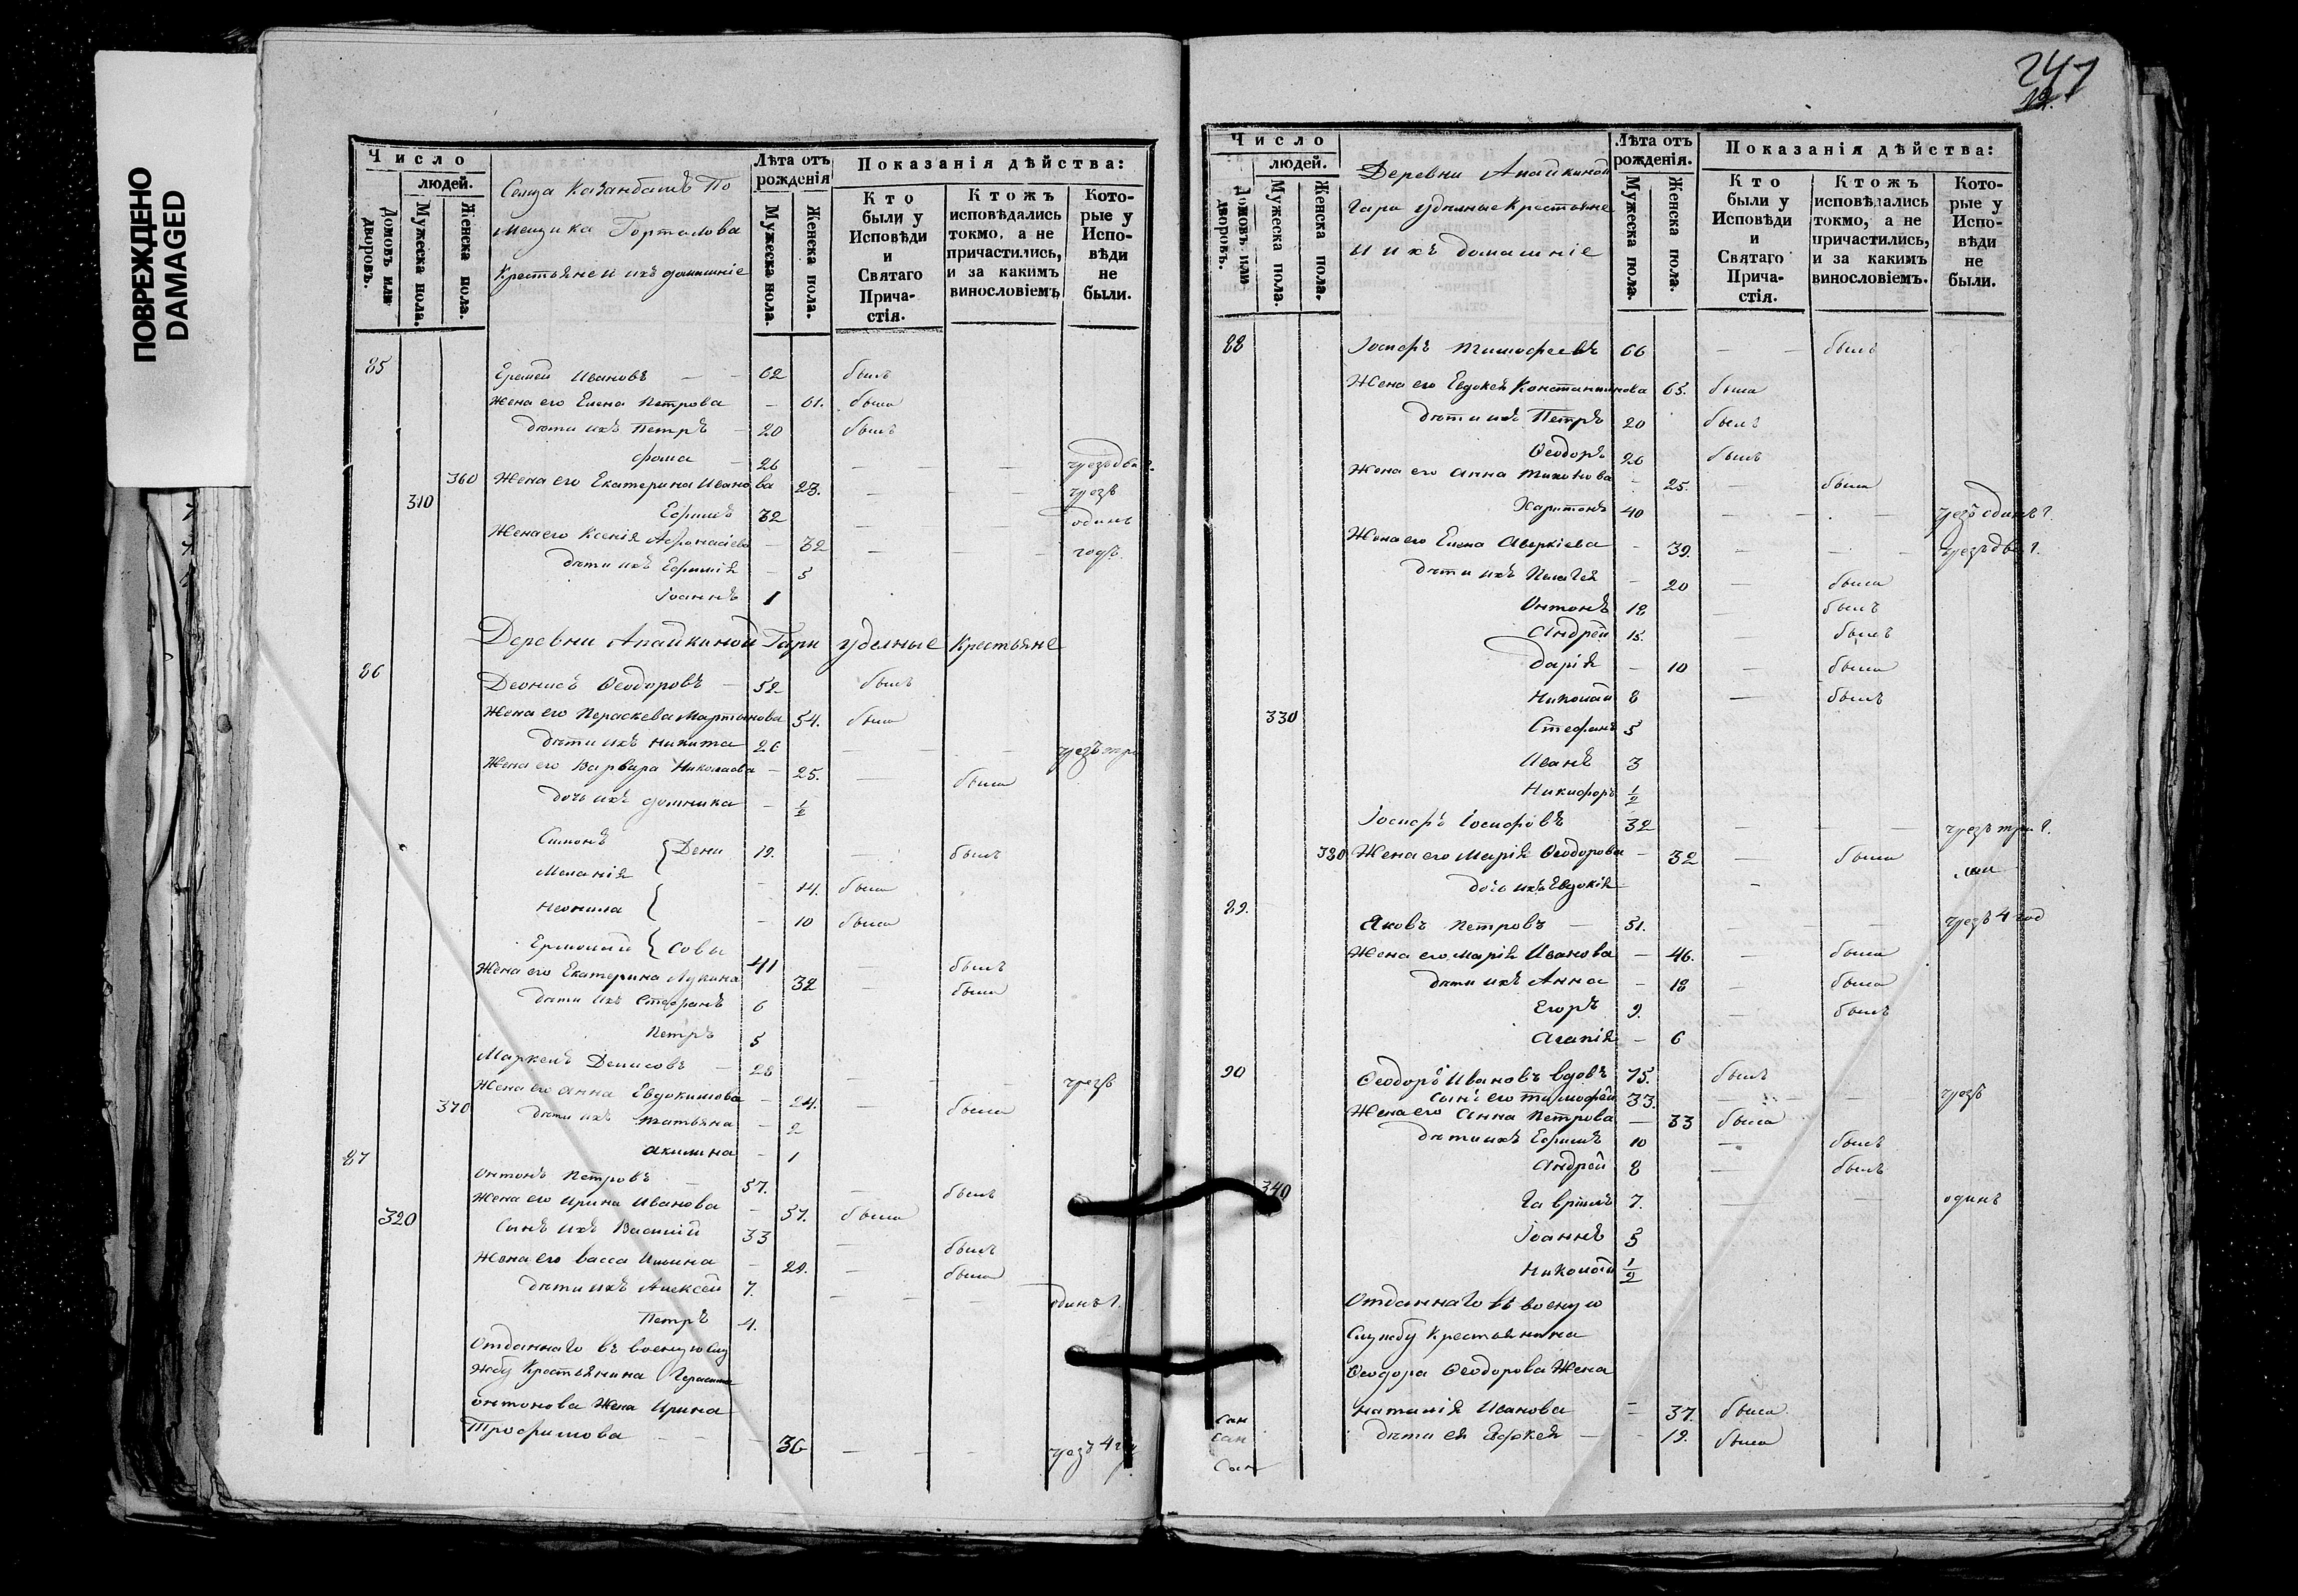 ПОВРЕЖДЕНО
DAMAGED
247
Число
людей.
Домовъ или дворовъ.
Мужеска пола.
Женска пола.
Помещика Горталова
Крестьяне и ихъ домашніе
Лѣта отъ рожденія
Мужеска пола.
Женска пола.
Показанія дѣйства:
Кто были у Исповѣди и Святаго Причастія.
Ктожъ исповѣдались токмо, а не причастились, и за какимъ винословіемъ
Которые у Исповѣди не были.
85
Еремей Ивановъ 62 былъ
Жена его Елена Петрова 61. была
дѣти ихъ Петръ 20 былъ
Фома 26 чрезъ два г.
360 Жена его Екатерина Иванова 23. чрезъ
310 Ефимъ 32 одинъ
Жена его Ксенія Афонасіева 32 годъ.
дѣти ихъ Ефимія 5
Іоаннъ 1
Деревни Апайкиной Гари удельные Крестьяне
86
Деонисъ Ѳеодоровъ 52 былъ
Жена его Пераскева Мартынова 54. была
дѣти ихъ Никита 26 чрезъ три
Жена его Варвара Николаева 25. была
дочь ихъ Домника ½
Симонъ Дени 19. былъ
Меланія 14. была
Неонила 10 была
Ермолай совы 41 былъ
Жена его Екатерина Лукина 32 была
дѣти ихъ Стефанъ 6
Петръ 5
Маркелъ Денисовъ 28 чрезъ
Жена его Анна Евдокимова 24. была
370 дѣти ихъ Татьяна 2
Акилина 1
87
Онтонъ Петровъ 57. былъ
Жена его Ирина Иванова 57. была
320 Сынъ ихъ Василій 33 былъ
Жена его Васса Ильина 29. была
дѣти ихъ Алексей 7. одинъ г.
Петръ 4.
Отданнаго въ военую слу
жбу Крестьянина Герасима
Онтонова Жена Ирина
Трофимова 36 чрезъ 4 год
Число
людей.
Домовъ или дворовъ.
Мужеска пола.
Женска пола.
Деревни Апайкиной
Гари удельные Крестьяне
и ихъ домашніе
Лѣта отъ рожденія.
Мужеска пола.
Женска пола.
Показанія дѣйства:
Кто были у Исповѣди и Святаго Причастія.
Ктожъ исповѣдались токмо, а не причастились, и за какимъ винословіемъ.
Которые у Исповѣди не были.
88 Іосифъ Тимофеевъ 66 былъ
Жена его Евдокея Константинова 65. была
дѣти ихъ Петръ 20 былъ
Ѳеодоръ 26 былъ
Жена его Анна 25. была
Харитонъ 40 чрезъ одинъ г.
Жена его Елена Аверкіева 39. чрезъ два г.
дѣти ихъ Пелагея 20 была
Онтонъ 18 былъ
Андрей 15. былъ
Дарія 10 была
Николай 8 былъ
330 Стефанъ 5
Иванъ 3
Никифоръ ½
Іосифъ Іосифовъ 32 чрезъ три г.
380 Жена его Марія Ѳеодорова 32 была
дочь ихъ Евдокія
89.
Яковъ Петровъ 51. чрезъ 4 год
Жена его Марія Иванова 46. была
дѣти ихъ Анна 18 была
Егоръ 9. былъ
Агапія 6
90 Ѳеодоръ Ивановъ вдовъ 75. былъ
сынъ его Тимофей 33. чрезъ
Жена его Анна Петрова 33 была
дѣти ихъ Ефимъ 10 былъ
Андрей 8 былъ
340 Гаврилъ 7. одинъ
Іоаннъ 5
Николай ½
Отданнаго въ военую
Службу Крестьянина
Ѳеодора Ѳеодорова Жена
Наталія Иванова 37. была
дѣти ея 19. была